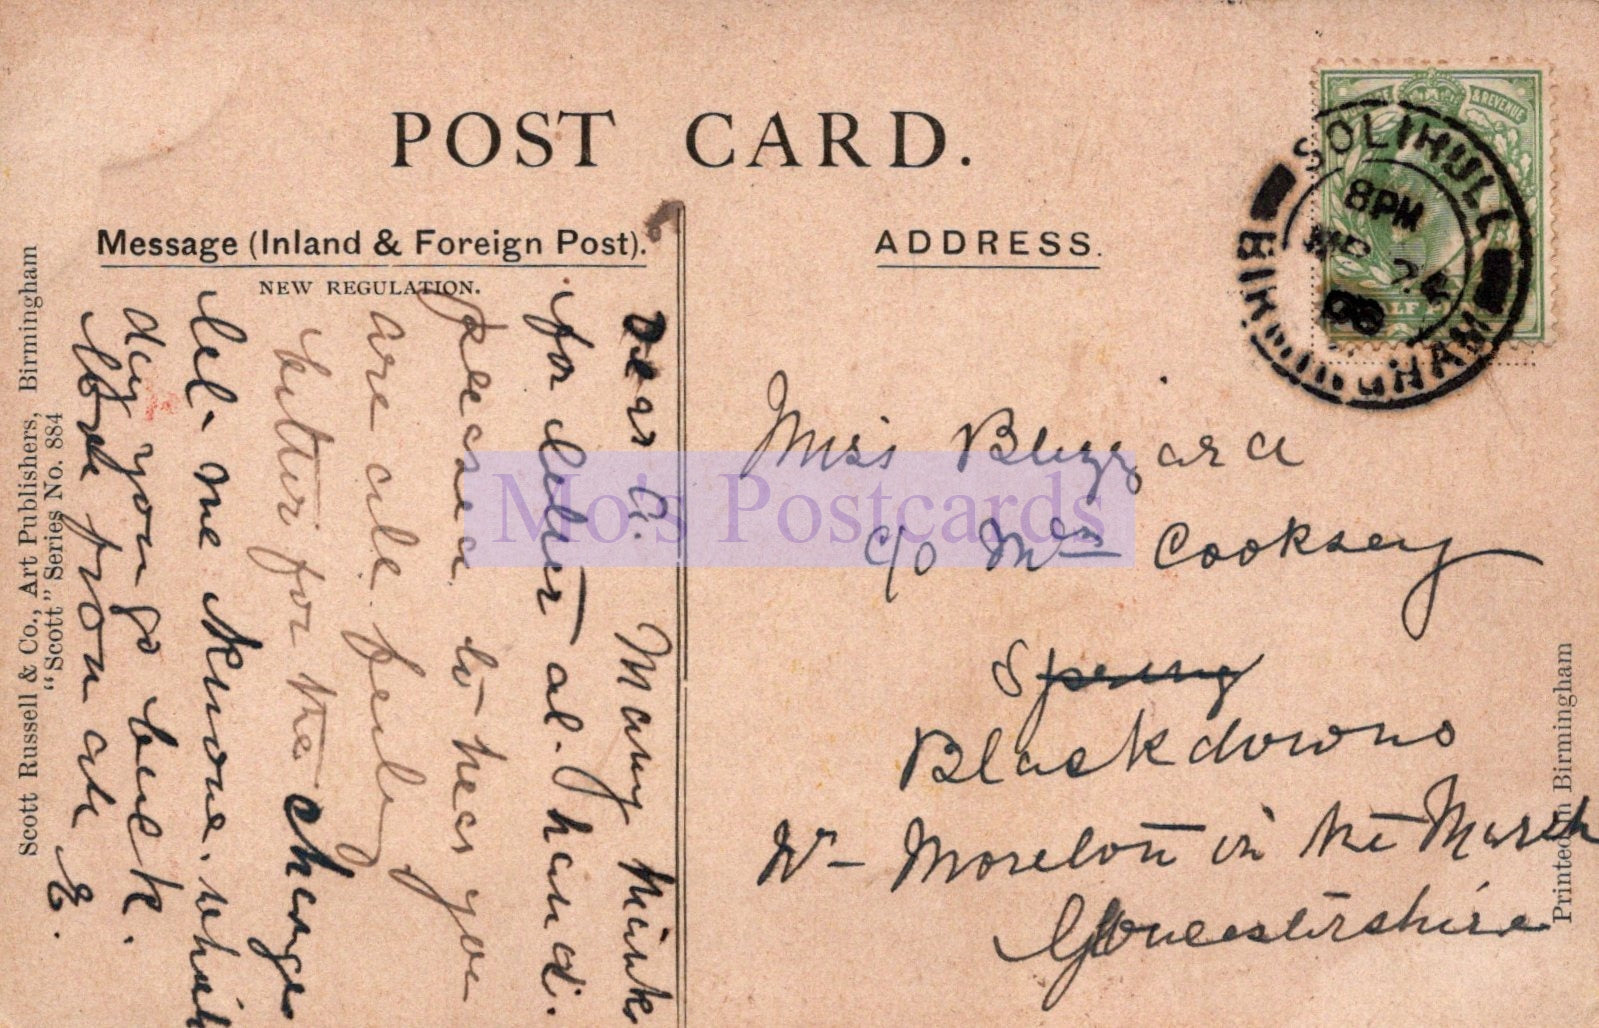 POST CARD.
Message (Inland & Foreign Post).
NEW REGULATION.
ADDRESS.
Scott Russell & Co., Art Publishers, Birmingham
"Scott" Series No. 884
Printed in Birmingham
POSTAGE & REVENUE
HALF PENNY
SOLIHULL
8 PM
24
06
BIRMINGHAM
Dear A. Many thanks
for letter at hand.
pleased to hear you
are all feeling
better for the change
let me know which
day you go back.
love from all E.
Miss Blizzard
c/o Mrs Cooksey
Spring
Blackdowns
Nr Moreton in the Marsh
Gloucestershire
Mo's Postcards